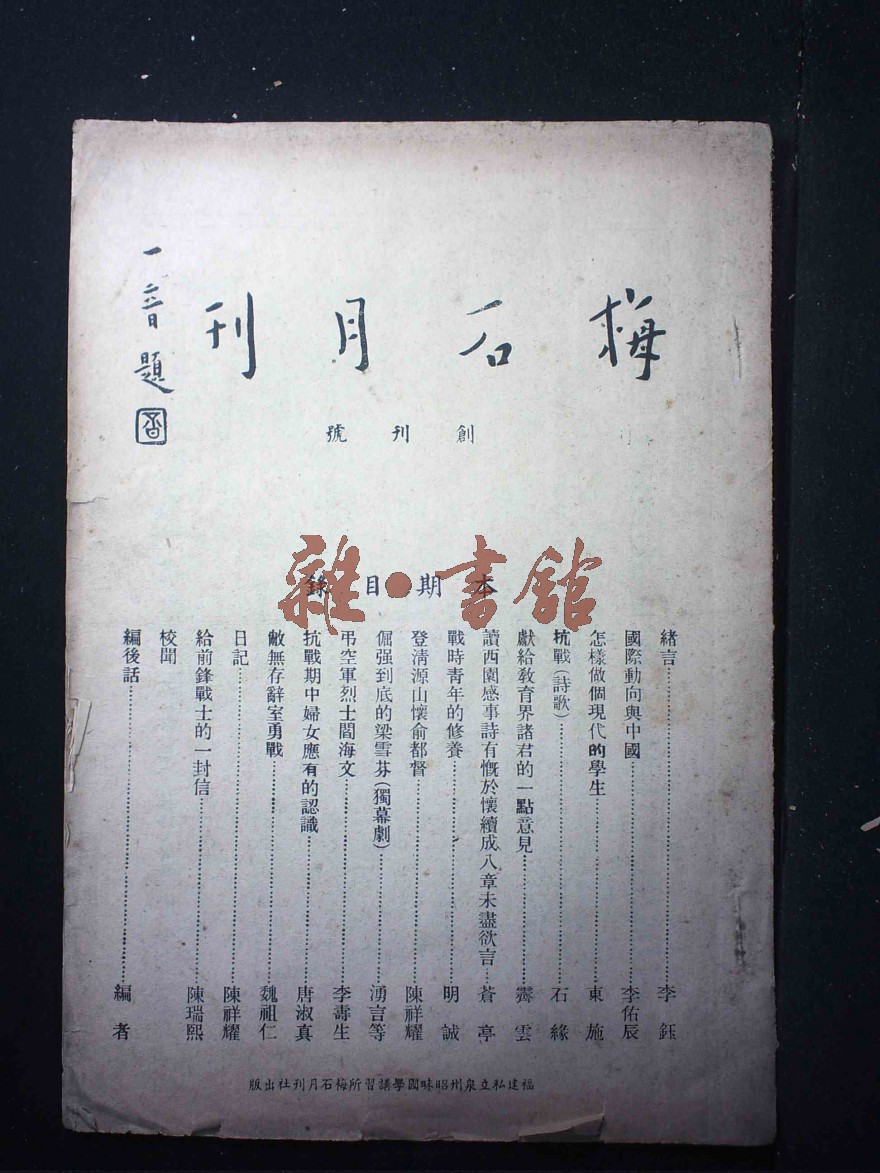 梅石月刊
一音題
創刊號
雜·書館
本期目錄
緒言……李鈺
國際動向與中國……李佑辰
怎樣做個現代的學生……東施
抗戰(詩歌)……石緣
獻給教育界諸君的一點意見……霽雲
讀西園感事詩有慨於懷續成八章未盡欲言……蒼亭
戰時青年的修養……明誠
登清源山懷俞都督……陳祥耀
倔强到底的梁雪芬(獨幕劇)……湧言等
弔空軍烈士閻海文……李壽生
抗戰期中婦女應有的認識……唐淑真
敝無存辭室勇戰……魏祖仁
日記……陳祥耀
給前鋒戰士的一封信……陳瑞熙
校聞
編後話……編者
福建私立泉州昭昧國學講習所梅石月刊社出版